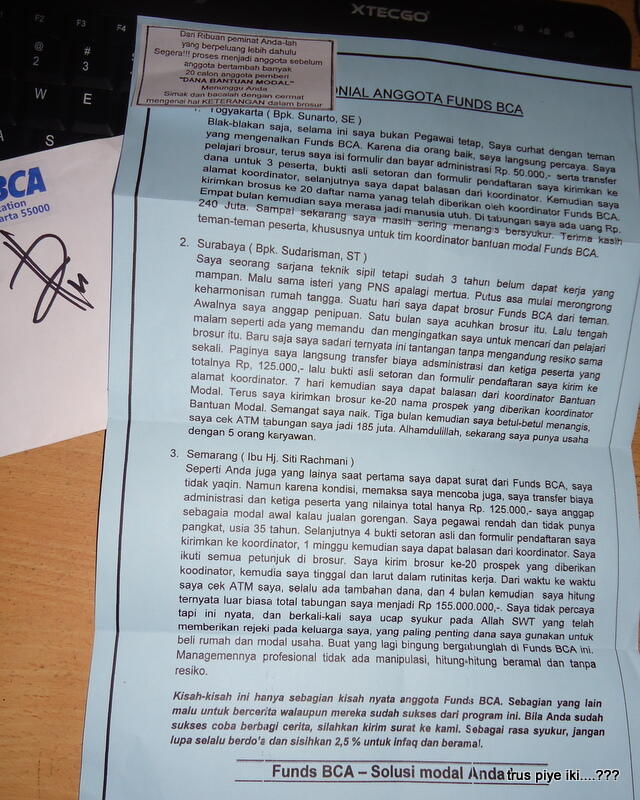 XTECGO
F2
F3
F4
@
2
#
3
W
E
A
S
BCA
ation
arta 55000
Dari Ribuan peminat Anda-lah
yang berpeluang lebih dahulu
Segera!!! proses menjadi anggota sebelum
anggota bertambah banyak
20 calon anggota pemberi
"DANA BANTUAN MODAL"
Menunggu Anda
Simak dan bacalah dengan cermat
mengenai hal KETERANGAN dalam brosur
ONIAL ANGGOTA FUNDS BCA
1. Yogyakarta ( Bpk. Sunarto, SE )
Blak-blakan saja, selama ini saya bukan Pegawai tetap, Saya curhat dengan teman
yang mengenalkan Funds BCA. Karena dia orang baik, saya langsung percaya. Saya
pelajari brosur, terus saya isi formulir dan bayar administrasi Rp. 50.000,- serta transfer
dana untuk 3 peserta, bukti asli setoran dan formulir pendaftaran saya kirimkan ke
alamat koordinator, selanjutnya saya dapat balasan dari koordinator. Kemudian saya
kirimkan brosus ke 20 daftar nama yanag telah diberikan oleh koordinator Funds BCA.
Empat bulan kemudian saya merasa jadi manusia utuh. Di tabungan saya ada uang Rp.
240 Juta. Sampai sekarang saya masih sering menangis bersyukur. Terima kasih
teman-teman peserta, khususnya untuk tim koordinator bantuan modal Funds BCA.
2. Surabaya ( Bpk. Sudarisman, ST )
Saya seorang sarjana teknik sipil tetapi sudah 3 tahun belum dapat kerja yang
mampan. Malu sama isteri yang PNS apalagi mertua. Putus asa mulai merongrong
keharmonisan rumah tangga. Suatu hari saya dapat brosur Funds BCA dari teman.
Awalnya saya anggap penipuan. Satu bulan saya acuhkan brosur itu. Lalu tengah
malam seperti ada yang memandu dan mengingatkan saya untuk mencari dan pelajari
brosur itu. Baru saja saya sadari ternyata ini tantangan tanpa mengandung resiko sama
sekali. Paginya saya langsung transfer biaya adsministrasi dan ketiga peserta yang
totalnya Rp, 125.000,- lalu bukti asli setoran dan formulir pendaftaran saya kirim ke
alamat koordinator. 7 hari kemudian saya dapat balasan dari koordinator Bantuan
Modal. Terus saya kirimkan brosur ke-20 nama prospek yang diberikan koordinator
Bantuan Modal. Semangat saya naik. Tiga bulan kemudian saya betul-betul menangis,
saya cek ATM tabungan saya jadi 185 juta. Alhamdulillah, sekarang saya punya usaha
dengan 5 orang karyawan.
3. Semarang ( Ibu Hj. Siti Rachmani )
Seperti Anda juga yang lainya saat pertama saya dapat surat dari Funds BCA, saya
tidak yaqin. Namun karena kondisi, memaksa saya mencoba juga, saya transfer biaya
administrasi dan ketiga peserta yang nilainya total hanya Rp. 125.000,- saya anggap
sebagaia modal awal kalau jualan gorengan. Saya pegawai rendah dan tidak punya
pangkat, usia 35 tahun. Selanjutnya 4 bukti setoran asli dan formulir pendaftaran saya
kirimkan ke koordinator, 1 minggu kemudian saya dapat balasan dari koordinator. Saya
ikuti semua petunjuk di brosur. Saya kirim brosur ke-20 prospek yang diberikan
koodinator, kemudia saya tinggal dan larut dalam rutinitas kerja. Dari waktu ke waktu
saya cek ATM saya, selalu ada tambahan dana, dan 4 bulan kemudian saya hitung
ternyata luar biasa total tabungan saya menjadi Rp 155.000.000,-. Saya tidak percaya
tapi ini nyata, dan berkali-kali saya ucap syukur pada Allah SWT yang telah
memberikan rejeki pada keluarga saya, yang paling penting dana saya gunakan untuk
beli rumah dan modal usaha. Buat yang lagi bingung bergabunglah di Funds BCA ini.
Managemennya profesional tidak ada manipulasi, hitung-hitung beramal dan tanpa
resiko.
Kisah-kisah ini hanya sebagian kisah nyata anggota Funds BCA. Sebagian yang lain
malu untuk bercerita walaupun mereka sudah sukses dari program ini. Bila Anda sudah
sukses coba berbagi cerita, silahkan kirim surat ke kami. Sebagai rasa syukur, jangan
lupa selalu berdo'a dan sisihkan 2,5 % untuk infaq dan beramal.
Funds BCA – Solusi modal Anda
trus piye iki....???